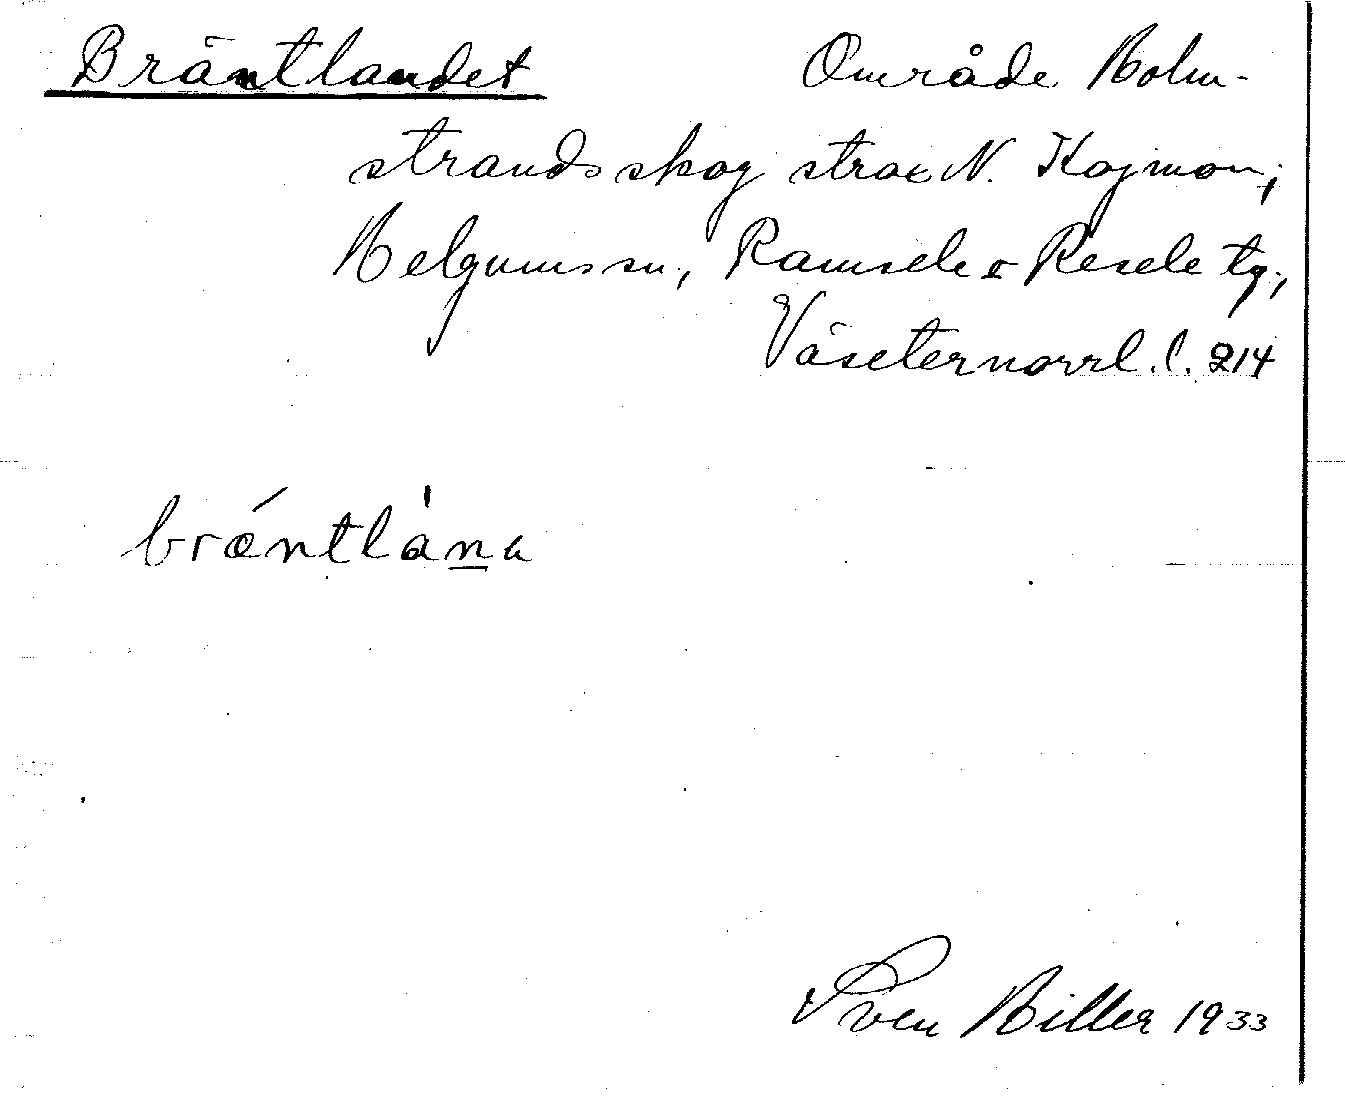 Bräntlandet Område Holm-
strands skog strax N. Kojmon;
Helgums sn, Ramsele o Resele tg,
Västernorrl. l. 214
brǽntlána
Sven Hiller 1933